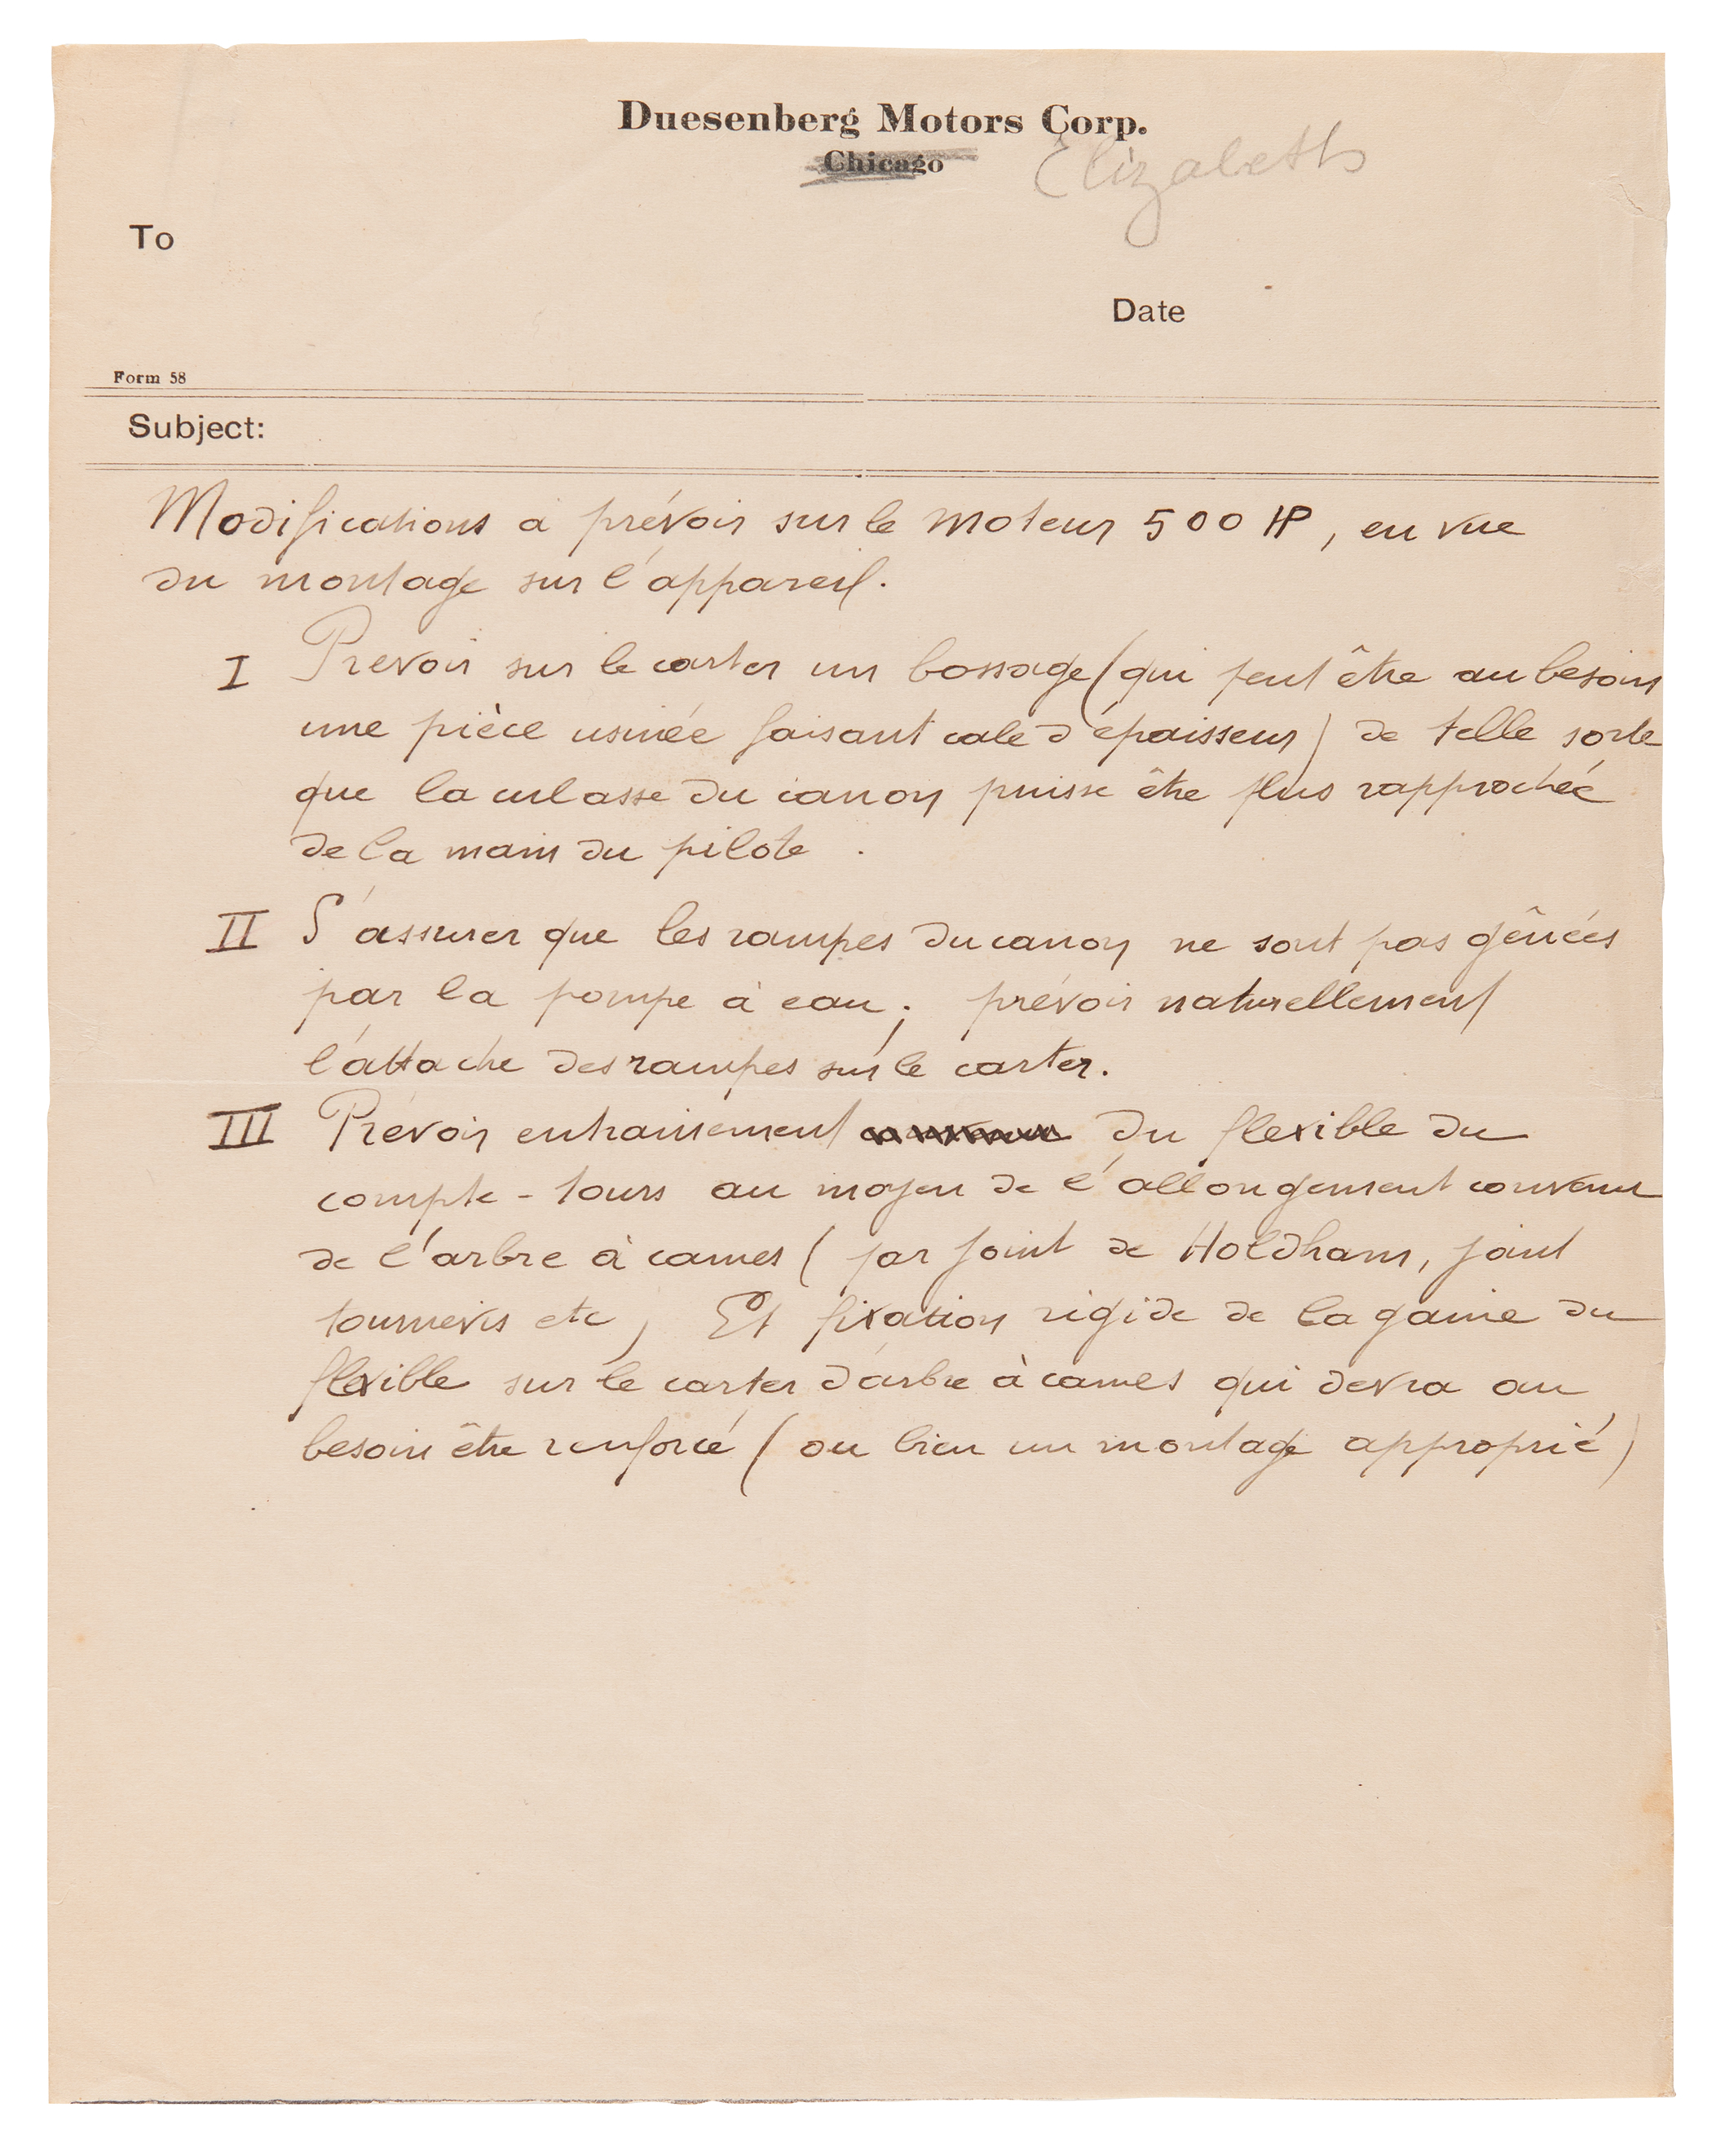 Duesenberg Motors Corp.
Chicago Elizabeth
To
Date
Form 58
Subject:
Modifications a prévoir sur le moteur 500 HP, en vue
du montage sur l'appareil.
I Prévoir sur le carter un bossage (qui peut être au besoin
une pièce usinée faisant cale d'épaisseur) de telle sorte
que la culasse du canon puisse être plus rapprochée
de la main du pilote.
II S'assurer que les rampes du canon ne sont pas gênées
par la pompe à eau; prévoir naturellement
l'attache des rampes sur le carter.
III Prévoir entrainement du flexible du
compte-tours au moyen de l'allongement convenu
de l'arbre à cames (par joint de Holdham, joint
tournevis etc) Et fixation rigide de la gaine du
flexible sur le carter d'arbre à cames qui devra au
besoin être renforcé (ou bien un montage approprié)